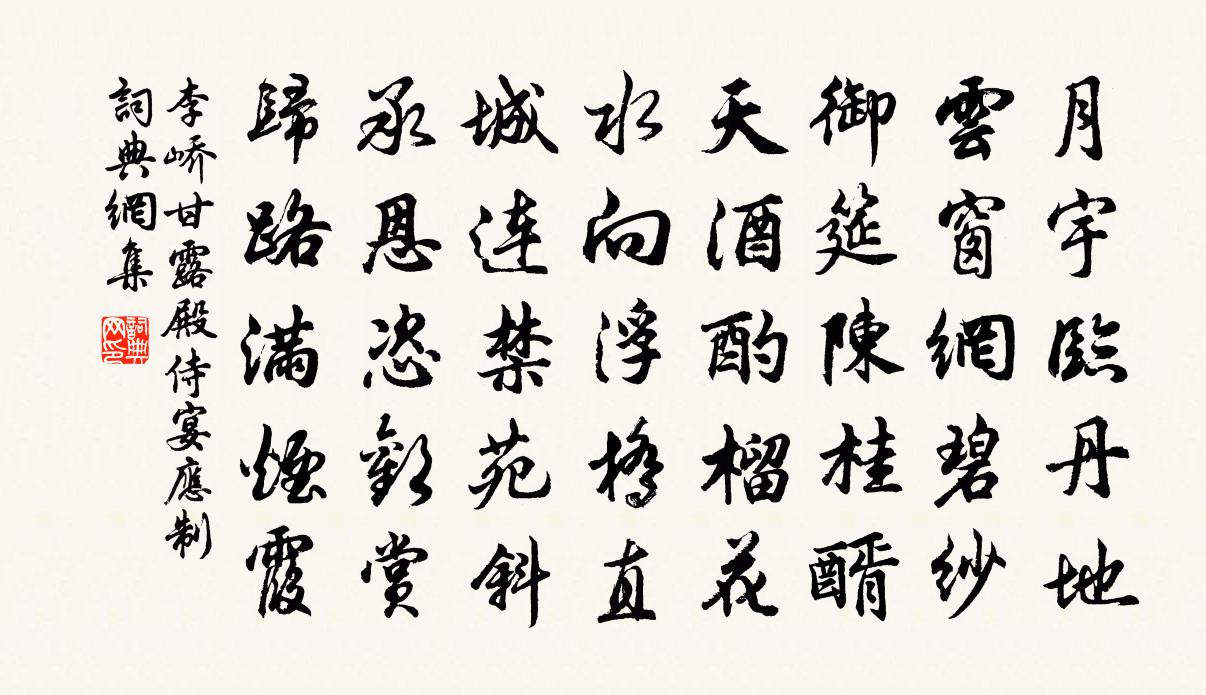 月宇臨丹地
雲窗網碧紗
御筵陳桂醑
天酒酌榴花
水向浮橋直
城連禁苑斜
承恩恣歡賞
歸路滿煙霞
李嶠甘露殿侍宴應制
詞典網集
詞典网印